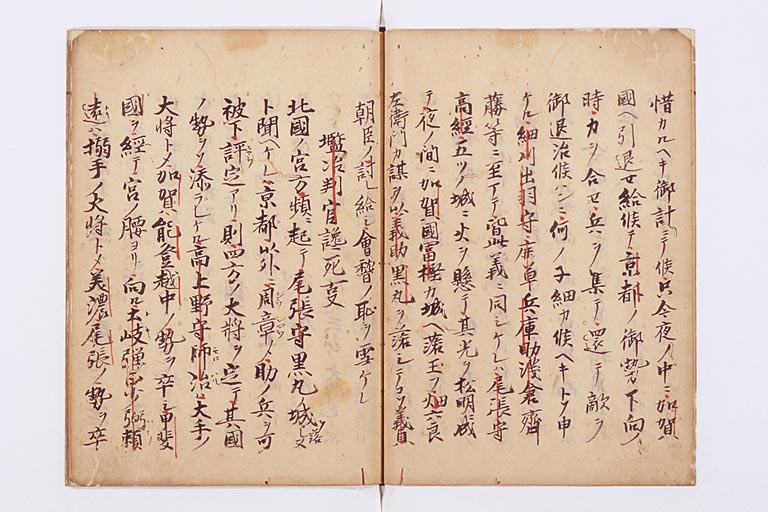 惜カルヘキ御計ニテ候只今夜ノ中ニ加賀
國ヘ引退セ給候テ京都ノ御勢下向ノ
時カヲ合セ兵ヲ集テ還テ敵ヲ
御退治候ハンニ何ノ子細カ候ヘキトソ申
ケル細川出羽守鹿草兵庫助浅倉齊
藤等ニ至マテ皆此義ニ同シケレハ尾張守
高經五ツノ城ニ火ヲ懸テ其光ヲ松明ニ成
テ夜ノ間ニ加賀國冨樫カ城ヘ落玉フ畑六良
左衛門カ謀ヲ以義助黒丸ヲ落シテコソ義貞
朝臣ノ討レ給シ會稽ノ恥ヲ雪ケレ
塩冶判官讒死叓
北國ノ宮方頻ニ起テ尾張守黒丸ノ城ヲ落シヌ
ト聞ヘケレハ京都以外ニ周章メ助ノ兵ヲ可
被下評定アリ則四方ノ大将ヲ定テ其國
ノ勢ヲソ添ラレケル高上野守師冶ハ大手ノ
大将トメ加賀能登越中ノ勢ヲ卒シ甲斐
國ヲ經テ宮ノ腰ヨリ向ル土岐弾正少弼頼
遠ハ搦手ノ大将トメ美濃尾張ノ勢ヲ卒